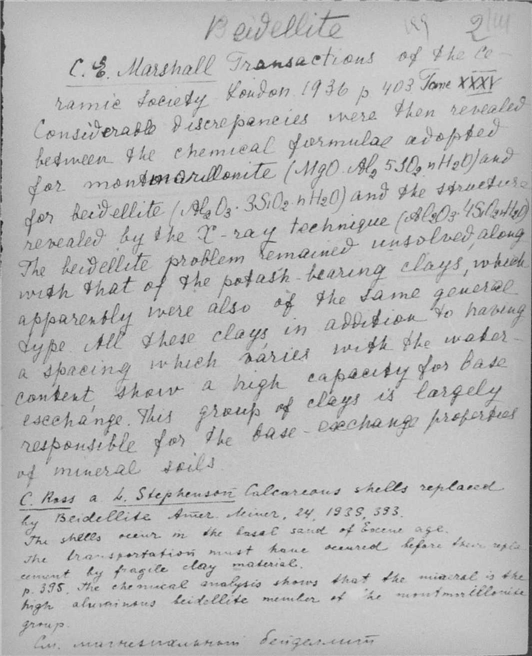 Beidellite 189 2
C. E. Marshall Transactions of the Ce-
ramic Society London 1936 p 403 Tome XXXV
Considerable discrepancies were then revealed
between the chemical formulae adopted
for montmarillonite (MgO·Al2 5SiO2 nH2O) and
for beidellite (Al2O3·3SiO2 nH2O) and the structure
revealed by the X-ray technique (Al2O3·4SiO2nH2O)
The beidellite problem remained unsolved, along
with that of the potash-bearing clays, which
apparently were also of the same general
type. All these clays in addition to having
a spacing which varies with the water-
content show a high capacity for base
escchange. This group of clays is largely
responsible for the base-exchange properties
of mineral soils
C. Ross a L. Stephenson Calcareous shells replaced
by Beidellite Amer. Miner. 24, 1939, 393.
The shells occur in the basal sand of Eocene age.
The transportation must have occured before their repla-
cement by fragile clay material.
p. 395. The chemical analysis shows that the mineral is the
high aluminous beidellite member of the montmorillonite
group.
См. магнезиальный бейделлит